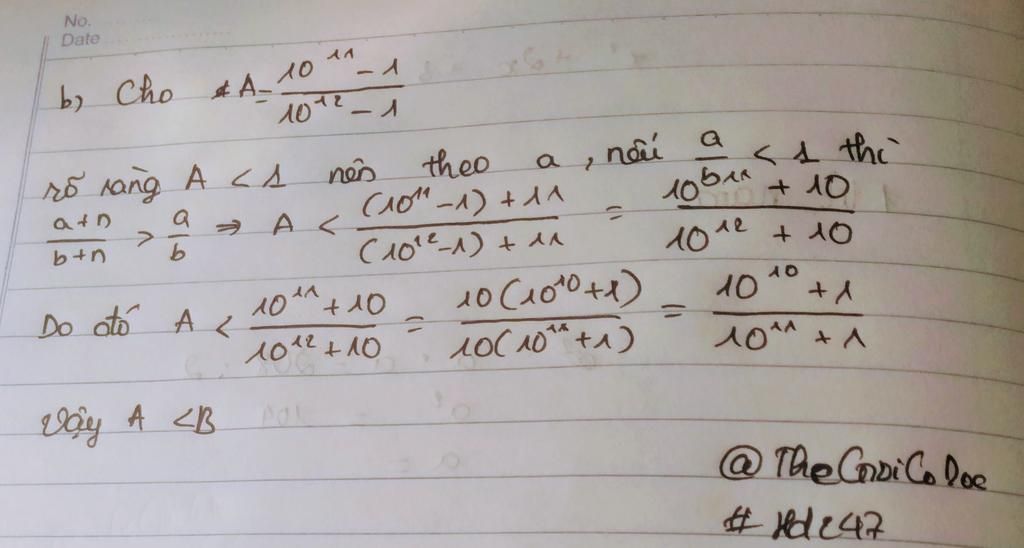 No.
Date
b) Cho A = \frac{10^{11} - 1}{10^{12} - 1}
rõ ràng A < 1 nên theo a, nếu \frac{a}{b} < 1 thì
\frac{a+n}{b+n} > \frac{a}{b} ⇒ A < \frac{(10^{11} - 1) + 11}{(10^{12} - 1) + 11} = \frac{10^{11} + 10}{10^{12} + 10}
Do đó A < \frac{10^{11} + 10}{10^{12} + 10} = \frac{10(10^{10} + 1)}{10(10^{11} + 1)} = \frac{10^{10} + 1}{10^{11} + 1}
Vậy A < B
@TheGioiCoDoc